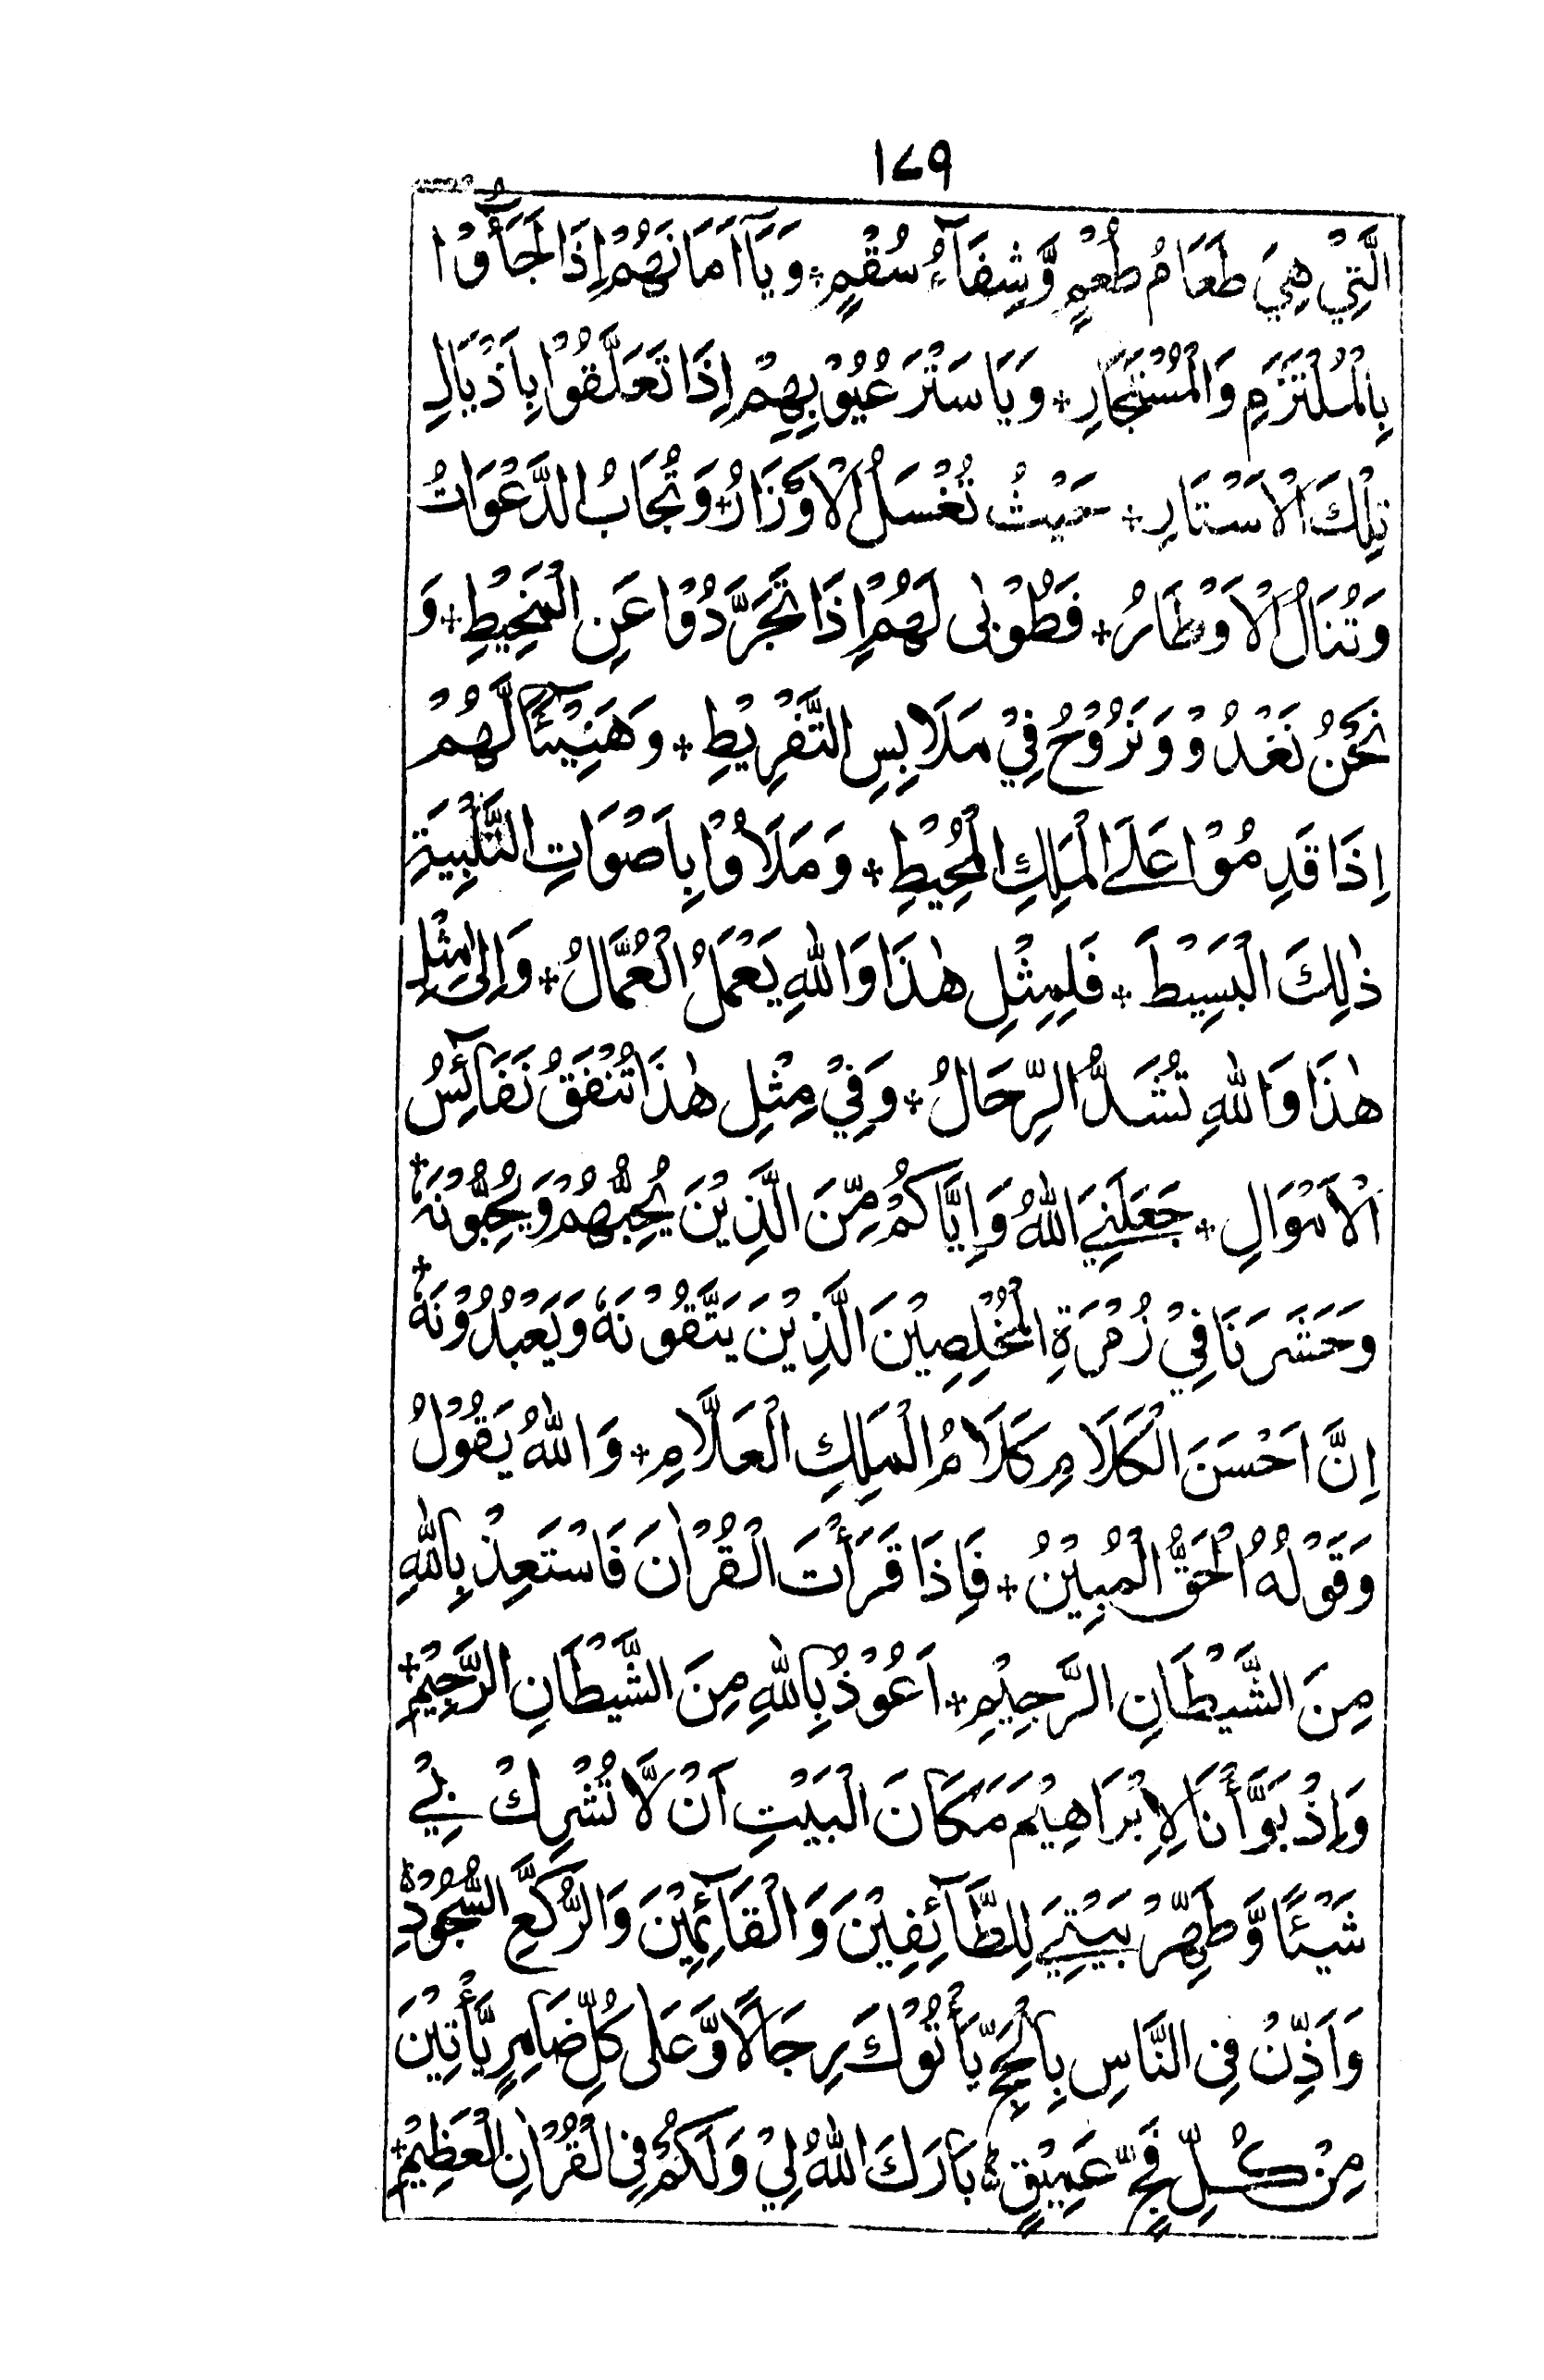 ١٧٩
الَّتِيْ هِيَ طَعَامُ طُعْمٍ وَّشِفَآءُ سُقْمٍ ۔ وَيَآ اَمَانَهُمْ اِذَا لَجَأُوْا
بِالْمُلْتَزَمِ وَالْمُسْتَجَارِ ۔ وَيَا سَتْرَ عُيُوْبِهِمْ اِذَا تَعَلَّقُوْا بِاَذْيَالِ
تِلْكَ الْاَسْتَارِ ۔ حَيْثُ تُغْسَلُ الْاَوْزَارُ ۔ وَتُجَابُ الدَّعَوَاتُ
وَتُنَالُ الْاَوْطَارُ ۔ فَطُوْبٰى لَهُمْ اِذَا تَجَرَّدُوْا عَنِ الْمَخِيْطِ ۔ وَ
نَحْنُ نَغْدُوْ وَنَرُوْحُ فِيْ مَلَابِسِ التَّفْرِيْطِ ۔ وَهَنِيْئًا لَّهُمْ
اِذَا قَدِمُوْا عَلَى الْمَلِكِ الْمُحِيْطِ ۔ وَمَلَأُوْا بِاَصْوَاتِ التَّلْبِيَةِ
ذٰلِكَ الْبَسِيْطَ ۔ فَلِمِثْلِ هٰذَا وَاللهِ يَعْمَلُ الْعُمَّالُ ۔ وَاِلٰى مِثْلِ
هٰذَا وَاللهِ تُشَدُّ الرِّحَالُ ۔ وَفِيْ مِثْلِ هٰذَا تُنْفَقُ نَفَآئِسُ
الْاَمْوَالِ ۔ جَعَلَنِيَ اللهُ وَاِيَّاكُمْ مِّنَ الَّذِيْنَ يُحِبُّهُمْ وَيُحِبُّوْنَهٗ ۔
وَحَشَرَنَا فِيْ زُمْرَةِ الْمُخْلِصِيْنَ الَّذِيْنَ يَتَّقُوْنَهٗ وَيَعْبُدُوْنَهٗ ۔
اِنَّ اَحْسَنَ الْكَلَامِ كَلَامُ الْمَلِكِ الْعَلَّامِ ۔ وَاللهُ يَقُوْلُ
وَقَوْلُهُ الْحَقُّ الْمُبِيْنُ ۔ فَاِذَا قَرَأْتَ الْقُرْاٰنَ فَاسْتَعِذْ بِاللهِ
مِنَ الشَّيْطَانِ الرَّجِيْمِ ۔ اَعُوْذُ بِاللهِ مِنَ الشَّيْطَانِ الرَّجِيْمِ ۔
وَاِذْ بَوَّأْنَا لِاِبْرَاهِيْمَ مَكَانَ الْبَيْتِ اَنْ لَّا تُشْرِكْ بِيْ
شَيْئًا وَّطَهِّرْ بَيْتِيَ لِلطَّآئِفِيْنَ وَالْقَآئِمِيْنَ وَالرُّكَّعِ السُّجُوْدِ ۝
وَاَذِّنْ فِى النَّاسِ بِالْحَجِّ يَأْتُوْكَ رِجَالًا وَّعَلٰى كُلِّ ضَامِرٍ يَّأْتِيْنَ
مِنْ كُلِّ فَجٍّ عَمِيْقٍ ۔ بَارَكَ اللهُ لِيْ وَلَكُمْ فِى الْقُرْاٰنِ الْعَظِيْمِ ۔